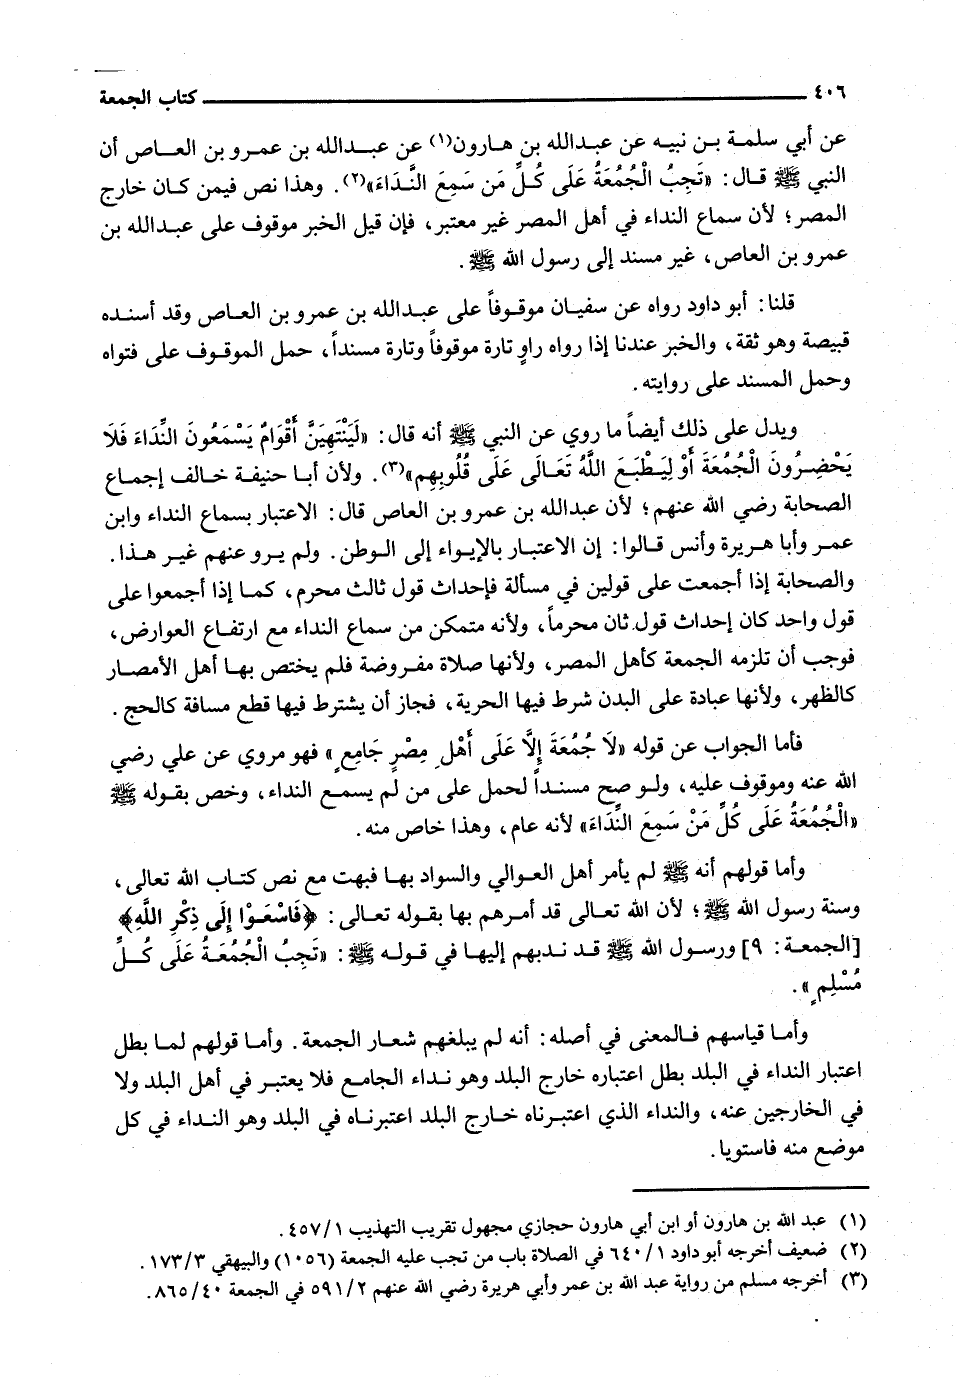 ٤٠٦ كتاب الجمعة
عن أبي سلمة بن نبيه عن عبدالله بن هارون(١) عن عبدالله بن عمرو بن العاص أن
النبي ﷺ قال: «تَجِبُ الْجُمُعَةُ عَلَى كُلِّ مَن سَمِعَ النَّدَاءَ»(٢). وهذا نص فيمن كان خارج
المصر؛ لأن سماع النداء في أهل المصر غير معتبر، فإن قيل الخبر موقوف على عبدالله بن
عمرو بن العاص، غير مسند إلى رسول الله ﷺ.
قلنا: أبو داود رواه عن سفيان موقوفاً على عبدالله بن عمرو بن العاص وقد أسنده
قبيصة وهو ثقة، والخبر عندنا إذا رواه راوٍ تارة موقوفاً وتارة مسنداً، حمل الموقوف على فتواه
وحمل المسند على روايته.
ويدل على ذلك أيضاً ما روي عن النبي ﷺ أنه قال: «لَيَنْتَهِيَنَّ أَقْوَامٌ يَسْمَعُونَ النِّدَاءَ فَلَا
يَحْضِرُونَ الْجُمُعَةَ أَوْ لِيَطْبَعَ اللَّهُ تَعَالَى عَلَى قُلُوبِهِم»(٣). ولأن أبا حنيفة خالف إجماع
الصحابة رضي الله عنهم؛ لأن عبدالله بن عمرو بن العاص قال: الاعتبار بسماع النداء وابن
عمر وأبا هريرة وأنس قالوا: إن الاعتبار بالإيواء إلى الوطن. ولم يرو عنهم غير هذا.
والصحابة إذا أجمعت على قولين في مسألة فإحداث قول ثالث محرم، كما إذا أجمعوا على
قول واحد كان إحداث قول ثان محرماً، ولأنه متمكن من سماع النداء مع ارتفاع العوارض،
فوجب أن تلزمه الجمعة كأهل المصر، ولأنها صلاة مفروضة فلم يختص بها أهل الأمصار
كالظهر، ولأنها عبادة على البدن شرط فيها الحرية، فجاز أن يشترط فيها قطع مسافة كالحج.
فأما الجواب عن قوله «لَا جُمُعَةَ إِلَّا عَلَى أَهْلِ مِصْرٍ جَامِعٍ» فهو مروي عن علي رضي
الله عنه وموقوف عليه، ولو صح مسنداً لحمل على من لم يسمع النداء، وخص بقوله ﷺ
«الْجُمُعَةُ عَلَى كُلِّ مَنْ سَمِعَ النِّدَاءَ» لأنه عام، وهذا خاص منه.
وأما قولهم أنه ﷺ لم يأمر أهل العوالي والسواد بها فبهت مع نص كتاب الله تعالى،
وسنة رسول الله ﷺ؛ لأن الله تعالى قد أمرهم بها بقوله تعالى: ﴿فَاسْعَوْا إِلَى ذِكْرِ اللَّهِ﴾
[الجمعة: ٩] ورسول الله ﷺ قد ندبهم إليها في قوله ﷺ: «تَجِبُ الْجُمُعَةُ عَلَى كُلِّ
مُسْلِمٍ».
وأما قياسهم فالمعنى في أصله: أنه لم يبلغهم شعار الجمعة. وأما قولهم لما بطل
اعتبار النداء في البلد بطل اعتباره خارج البلد وهو نداء الجامع فلا يعتبر في أهل البلد ولا
في الخارجين عنه، والنداء الذي اعتبرناه خارج البلد اعتبرناه في البلد وهو النداء في كل
موضع منه فاستويا.
(١) عبد الله بن هارون أو ابن أبي هارون حجازي مجهول تقريب التهذيب ٤٥٧/١.
(٢) ضعيف أخرجه أبو داود ٦٤٠/١ في الصلاة باب من تجب عليه الجمعة (١٠٥٦) والبيهقي ١٧٣/٣.
(٣) أخرجه مسلم من رواية عبد الله بن عمر وأبي هريرة رضي الله عنهم ٥٩١/٢ في الجمعة ٨٦٥/٤٠.